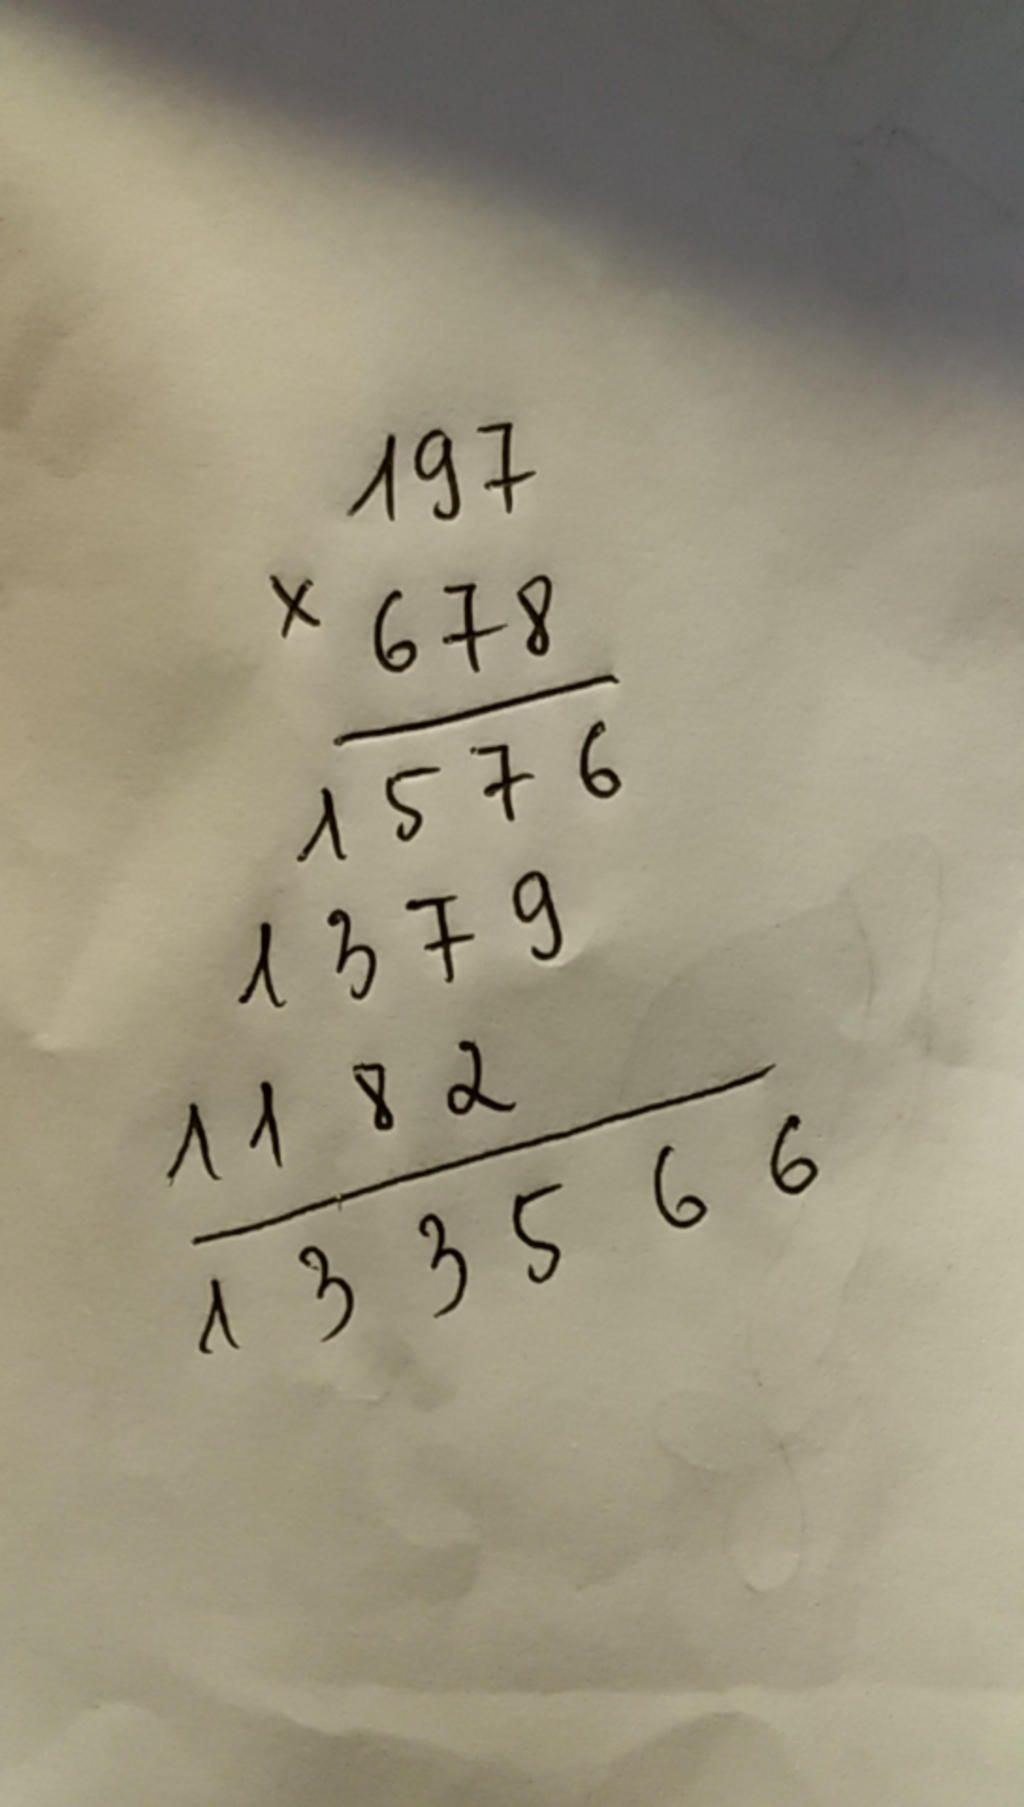 197
× 678
1576
1379
1182
133566